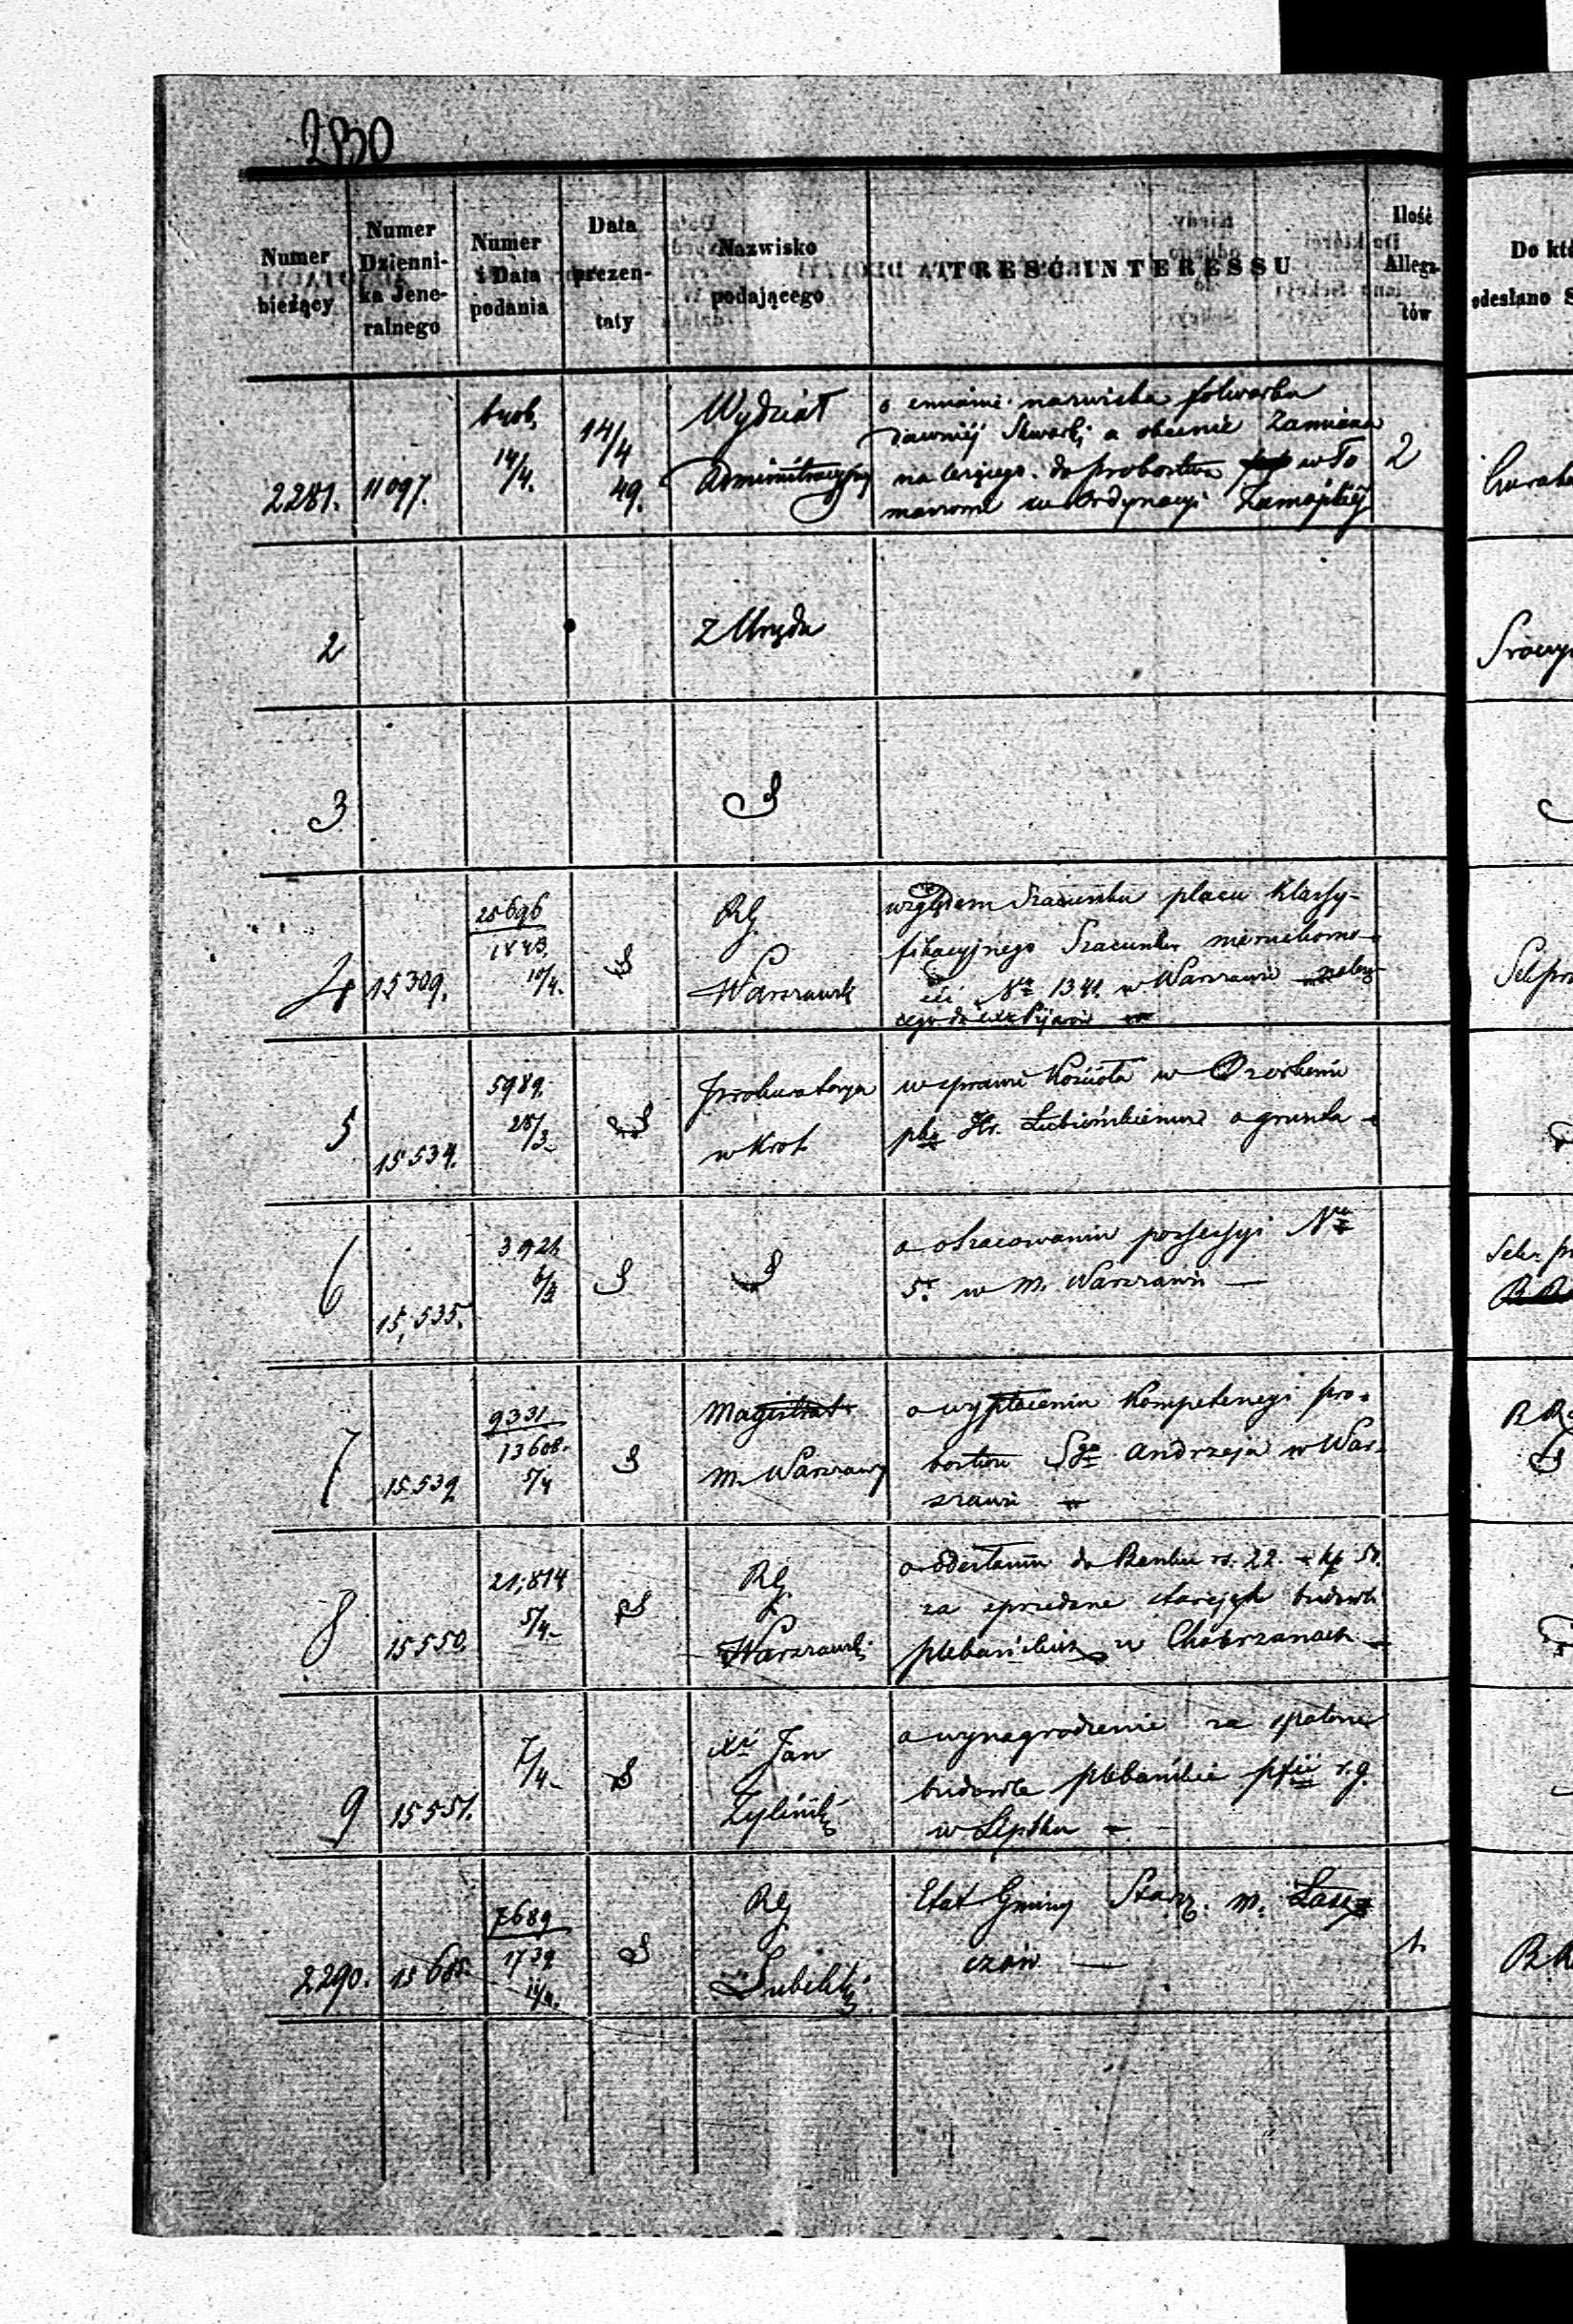 230
Numer bieżący
Numer Dzienni-ka Jene-ralnego
Numer i Data podania
Data prezen-taty
Nazwisko podającego
TREŚĆ INTERESSU
Ilość Allega-tów
Do któ
odesłano S
2281.
11097.
14/4.
14/4 49.
Wydział
Administracyjny
nazwiska folwarku
dawniéj a obecnie Zamiana
należącego do probostwa w To
maszowie w Ordynacyi Zamojskiéj
2
2
z Urzędu
3
4
15309.
25696
1843.
10/4.
RG.
Warszawski
względem Szacunku placu Klassy-
fikacyjnego Szacunku nieruchomo-
ści No 1341. w Warszawie należą
cego do XX Pijarów
5
15534.
5989.
28/3
Prokuratorya
w Król
w sprawie Kościoła w Ozorkowie
pko Hr. Łubieńskiemu o grunta
6
15,535.
3921.
6/3
o oszacowaniu possessyi No
5. w m. Warszawie —
7
15539
9331
13608.
5/4
Magistrat
m. Warszawy
o wypłaceniu Kompetencyi pro-
bostwu Sgo Andrzeja w War-
szawie
8
15550.
21,814
5/4
RG.
Warszawski
o odesłaniu do Banku rs. 22. kp 50.
za sprzedane budowle
plebańskich w Chobrzanach
9
15551.
7/4
Xs Jan
Żyliński
o wynagrodzenie za spalone
budowle plebańskie
w Lipsku
2290.
15685.
7689
1739
11/4.
RG
Lubelski
Etat Gminy Starz. m. Łasz
czów —
1.